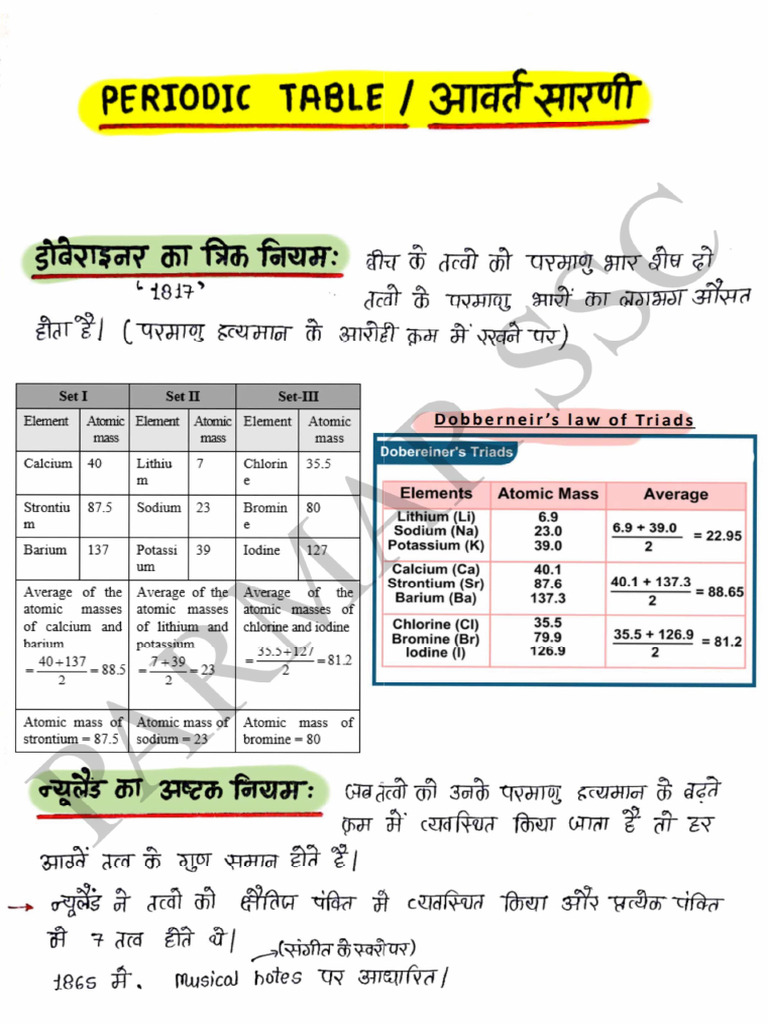 PERIODIC TABLE / आवर्त सारणी
डोबेराइनर का त्रिक नियम:
'1817'
बीच के तत्वो को परमाणु भार शेष दो
तत्वो के परमाणु भारों का लगभग औसत
होता है। (परमाणु द्रव्यमान के आरोही क्रम में रखने पर)
Set I Set II Set-III
Element Atomic mass Element Atomic mass Element Atomic mass
Calcium 40 Lithiu m 7 Chlorin e 35.5
Strontiu m 87.5 Sodium 23 Bromin e 80
Barium 137 Potassi um 39 Iodine 127
Average of the atomic masses of calcium and barium Average of the atomic masses of lithium and potassium Average of the atomic masses of chlorine and iodine
= 40+137 / 2 = 88.5 = 7+39 / 2 = 23 = 35.5+127 / 2 = 81.2
Atomic mass of strontium = 87.5 Atomic mass of sodium = 23 Atomic mass of bromine = 80
Dobberneir's law of Triads
Dobereiner's Triads
Elements Atomic Mass Average
Lithium (Li) 6.9
Sodium (Na) 23.0 6.9 + 39.0 / 2 = 22.95
Potassium (K) 39.0
Calcium (Ca) 40.1
Strontium (Sr) 87.6 40.1 + 137.3 / 2 = 88.65
Barium (Ba) 137.3
Chlorine (Cl) 35.5
Bromine (Br) 79.9 35.5 + 126.9 / 2 = 81.2
Iodine (I) 126.9
न्यूलैंड का अष्टक नियम:
जब तत्वो को उनके परमाणु द्रव्यमान के बढ़ते
क्रम में व्यवस्थित किया जाता है तो हर
आठवें तत्व के गुण समान होते है।
→ न्यूलैंड ने तत्वो को क्षैतिज पंक्ति में व्यवस्थित किया और प्रत्येक पंक्ति
मे 7 तत्व होते थे।
(संगीत के स्वरो पर)
1865 में. Musical notes पर आधारित।
PARMAR SSC